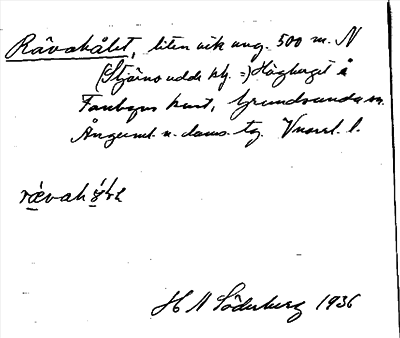 Rävahålet, liten vik ung. 500 m. N
(Stjärnoudde kly. =) Högberget å
Fanbyns kust, Grundsunda sn.
Ångerml. n. doms. tg. Vnorrl. l.
rævah
H N Söderberg 1936